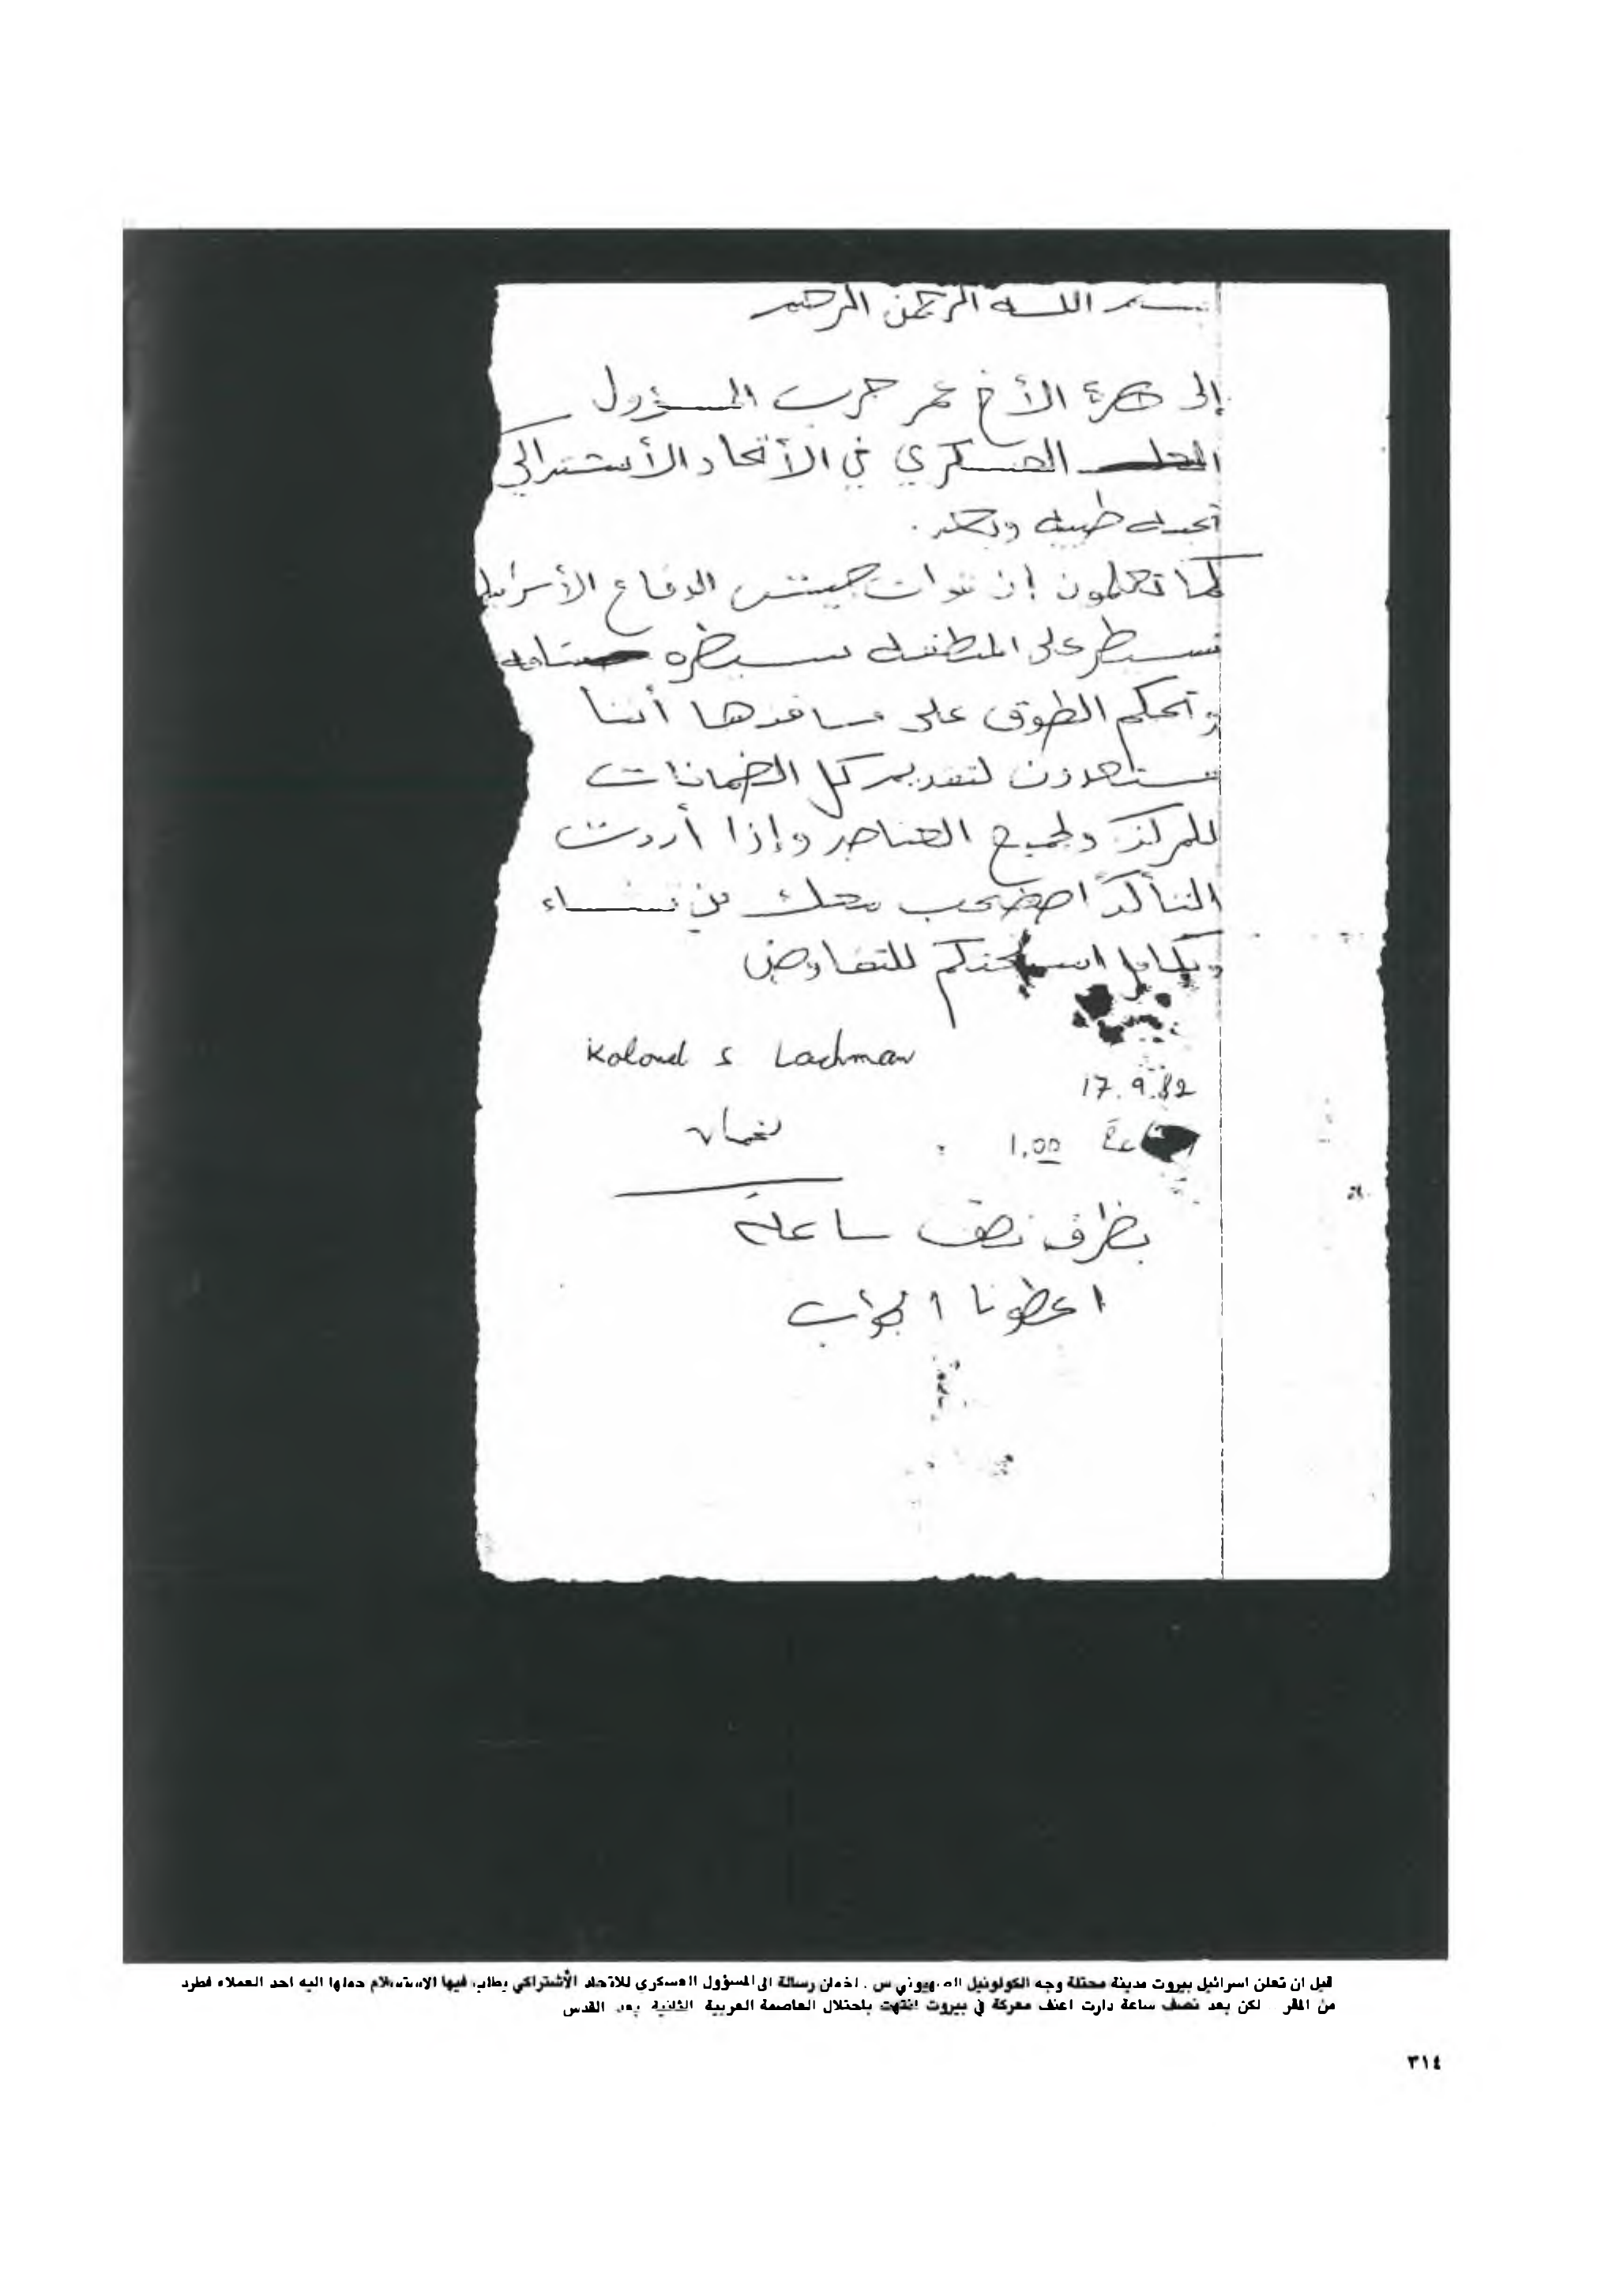 بسم اللـه الرحمن الرحيم
إلى حضرة الأخ عمر حرب المسؤول
العسكري في الأتحاد الأشتراكي
تحيه طيبه وبعد.
كما تعلمون إن قوات جيش الدفاع الأسرائيلي
تسيطر على المنطقه سيطره تامه
وتحكم الطوق على منافذها أننا
مستعدون لتقديم كل الضمانات
للمركز ولجميع العناصر وإذا أردت
التأكد اصطحب معك من تشاء
وبكامل اسلحتكم للتفاوض
Kolonel S Lachman
17.9.82
1.00
بظرف نصف ساعة
اعطونا الجواب
قبل ان تعلن اسرائيل بيروت مدينة محتلة وجه الكولونيل الصهيوني س. لخمان رسالة الى المسؤول العسكري للاتحاد الأشتراكي يطلب فيها الاستسلام حملها اليه احد العملاء فطرد
من المقر لكن بعد نصف ساعة دارت اعنف معركة في بيروت انتهت باحتلال العاصمة العربية الثانية بعد القدس
٣١٤